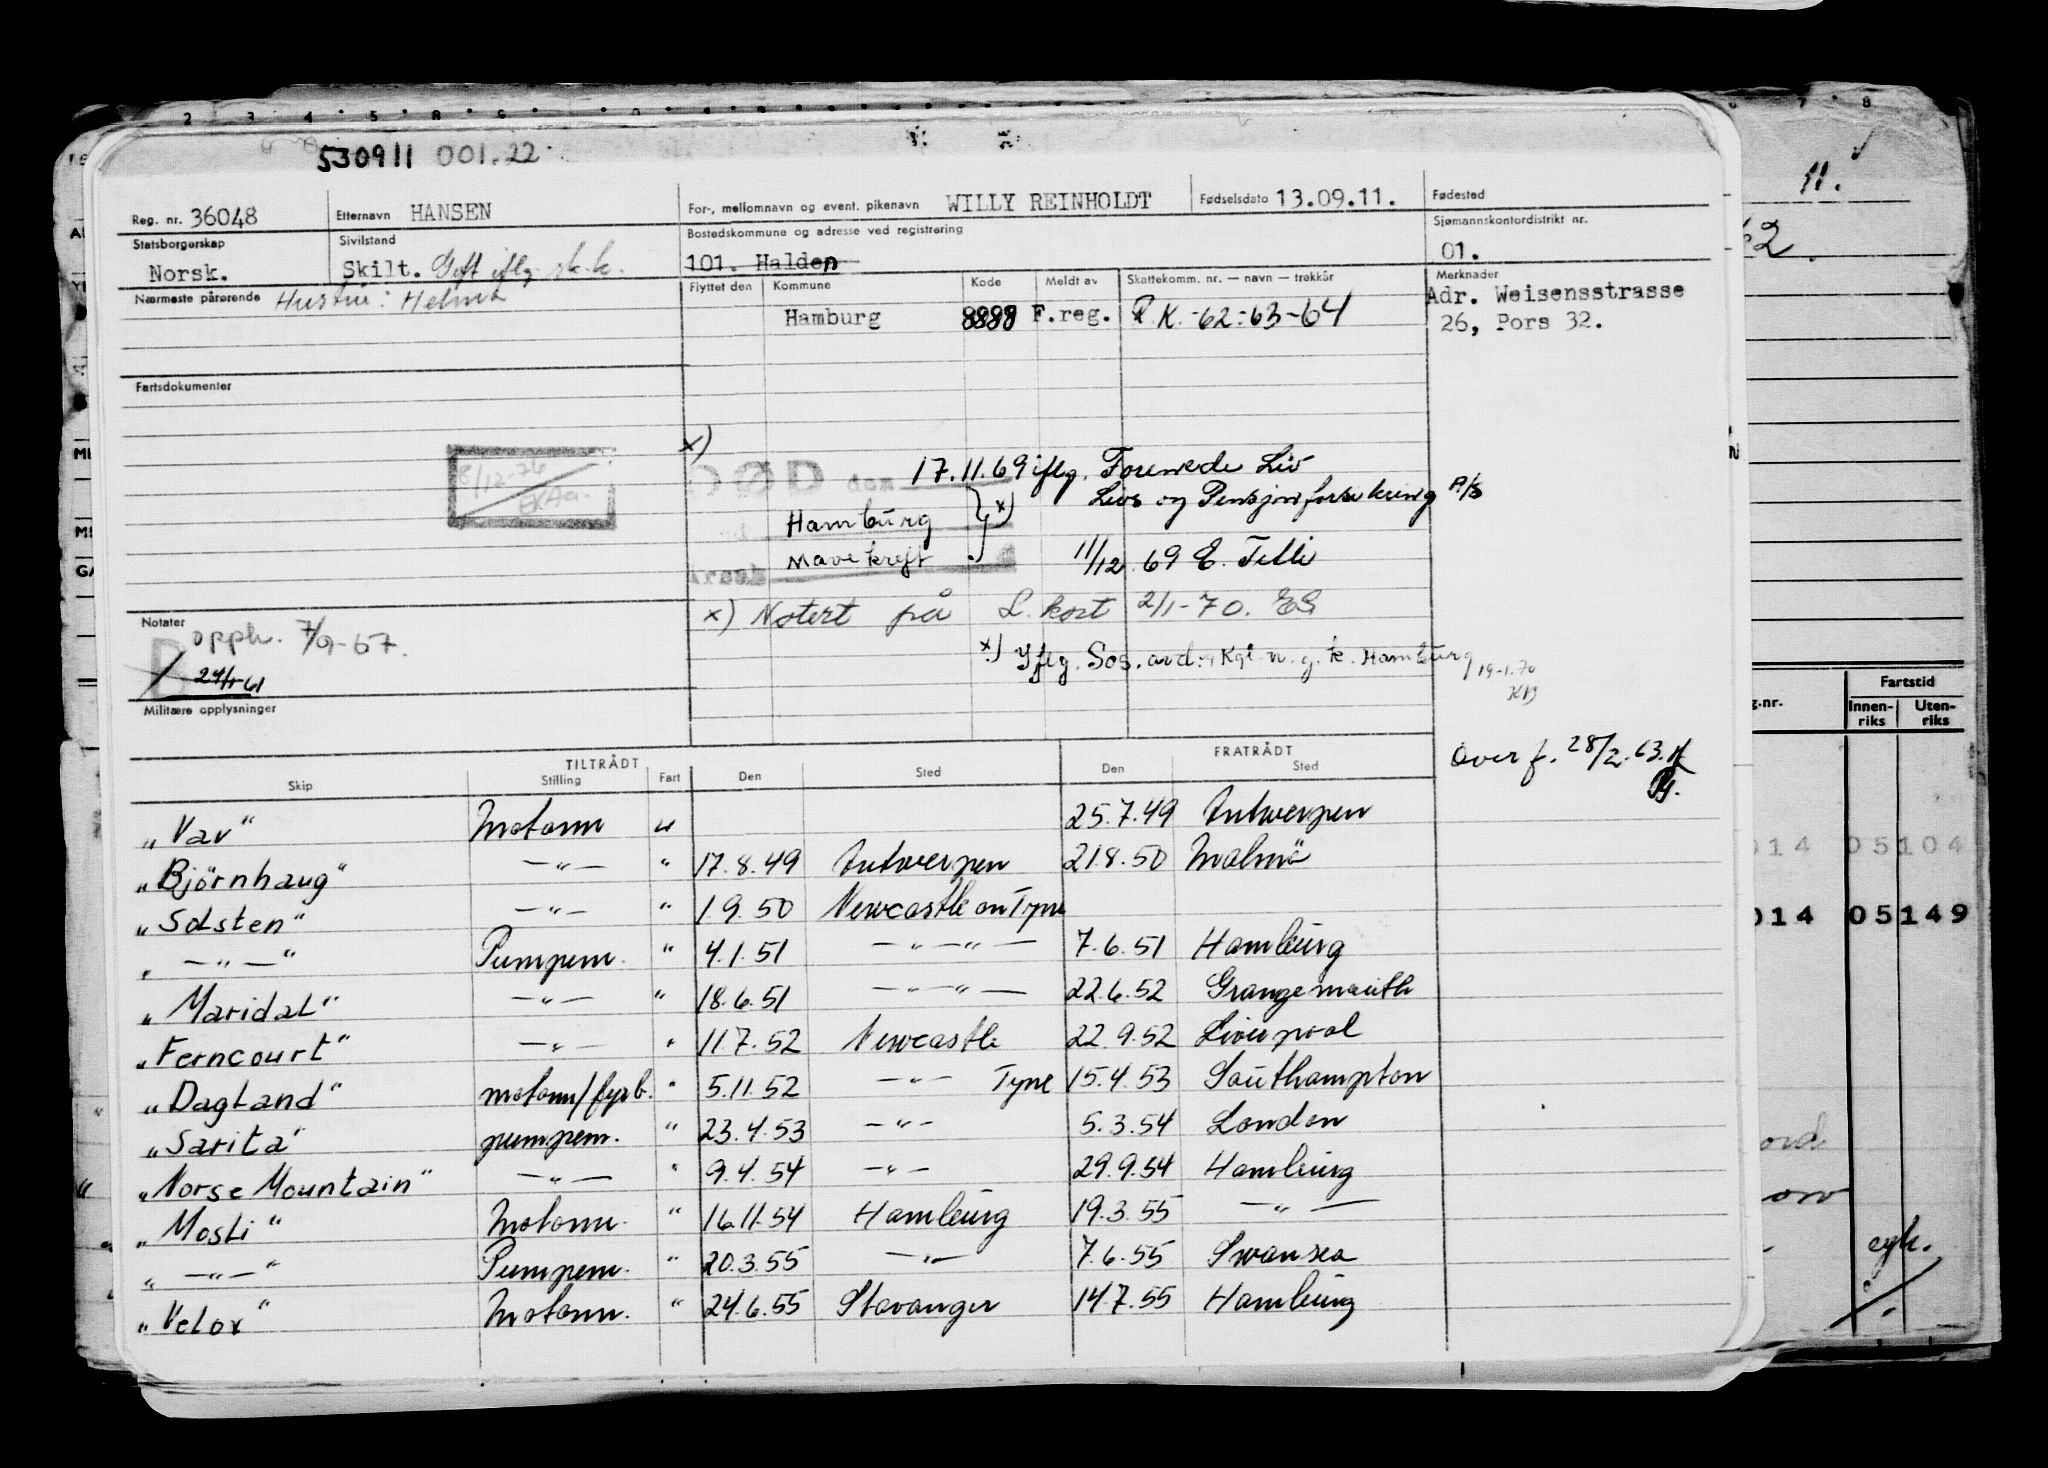 530911 001.22
Reg. nr. 36048 Etternavn HANSEN For-, mellomnavn og event. pikenavn WILLY REINHOLDT Fødselsdato 13.09.11. Fødested
Statsborgerskap Norsk. Sivilstand Skilt. Gift iflg. sk.k. Bostedskommune og adresse ved registrering 101. Halden Sjømannskontordistrikt nr. 01.
Nærmeste pårørende Hustru: Helma Flyttet den Kommune Kode Meldt av Skattekomm. nr. — navn — trekkår Merknader
Hamburg 8888 F.reg. P.K. -62-63-64 Adr. Weisensstrasse
26, Pors 32.
Fartsdokumenter
8/12-76
x)
DØD den 17.11.69 iflg. Forenede Liv
Livs og Pensjonsforsikring A/S
Hamburg x)
Mavekreft 11/12 69 E. Telli
x) Notert på L. kort 2/1-70. ES
x) Iflg. Sos. avd. Kgl. n. g. k. Hamburg 19-1.70
KB
Notater
opph. 7/9-67.
24/1-61
Militære opplysninger
Overf. 28/2.63.
TILTRÅDT FRATRÅDT
Skip Stilling Fart Den Sted Den Sted
"Vav" Motorm u 25.7.49 Antwerpen
"Bjørnhaug" —"— " 17.8.49 Antwerpen 21.8.50 Malmö
"Solsten" —"— " 1 9.50 Newcastle on Tyne
"—"—" Pumpem. " 4.1.51 —"—"— 7.6.51 Hamburg
"Maridal" —"— " 18.6.51 —"—"— 22.6.52 Grangemouth
"Ferncourt" —"— " 11.7.52 Newcastle 22.9.52 Liverpool
"Dagland" motorm/fyrb. " 5.11.52 —"— Tyne 15.4.53 Southampton
"Sarita" pumpem. " 23.4.53 —"— 5.3.54 London
"Norse Mountain" —"— " 9.4.54 —"— 29.9.54 Hamburg
"Mosli" Motorm. " 16.11.54 Hamburg 19.3.55 —"—
"—"—" Pumpem. " 20.3.55 —"— 7.6.55 Swansea
"Velox" Motorm. " 24.6.55 Stavanger 14.7.55 Hamburg
11.
62.
g.nr. Fartstid
Innen-riks Uten-riks
014 05104
014 05149